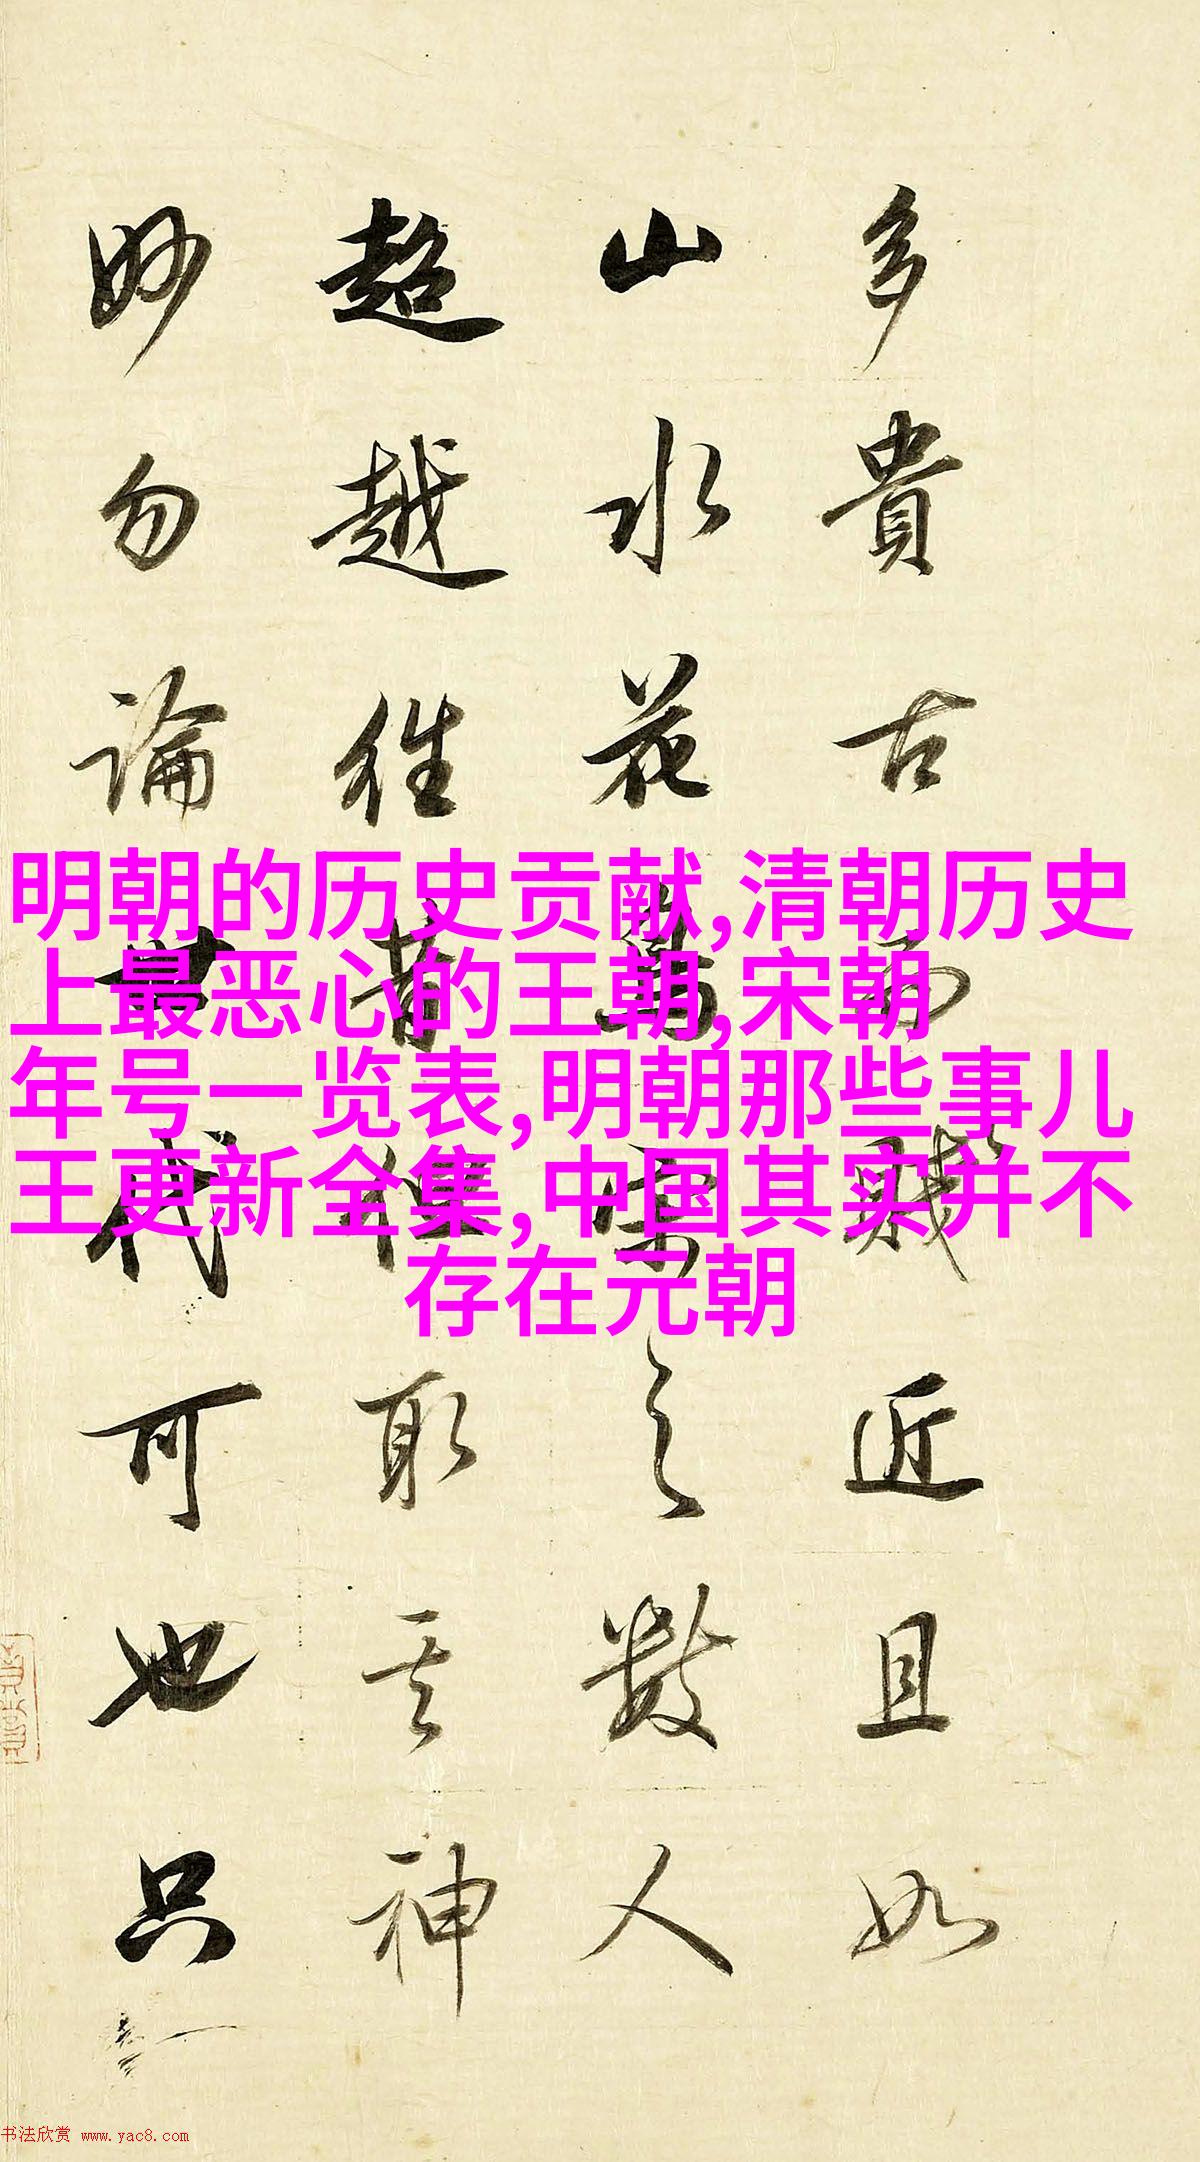 多貴古而賤近且如
山水花鳥宋之數人
超越往昔但取其神
妙勿論世代可也只
明朝的历史贡献,清朝历史
上最恶心的王朝,宋朝
年号一览表,明朝那些事儿
王更新全集,中国其实并不
存在元朝
书法欣赏 www.yac8.com